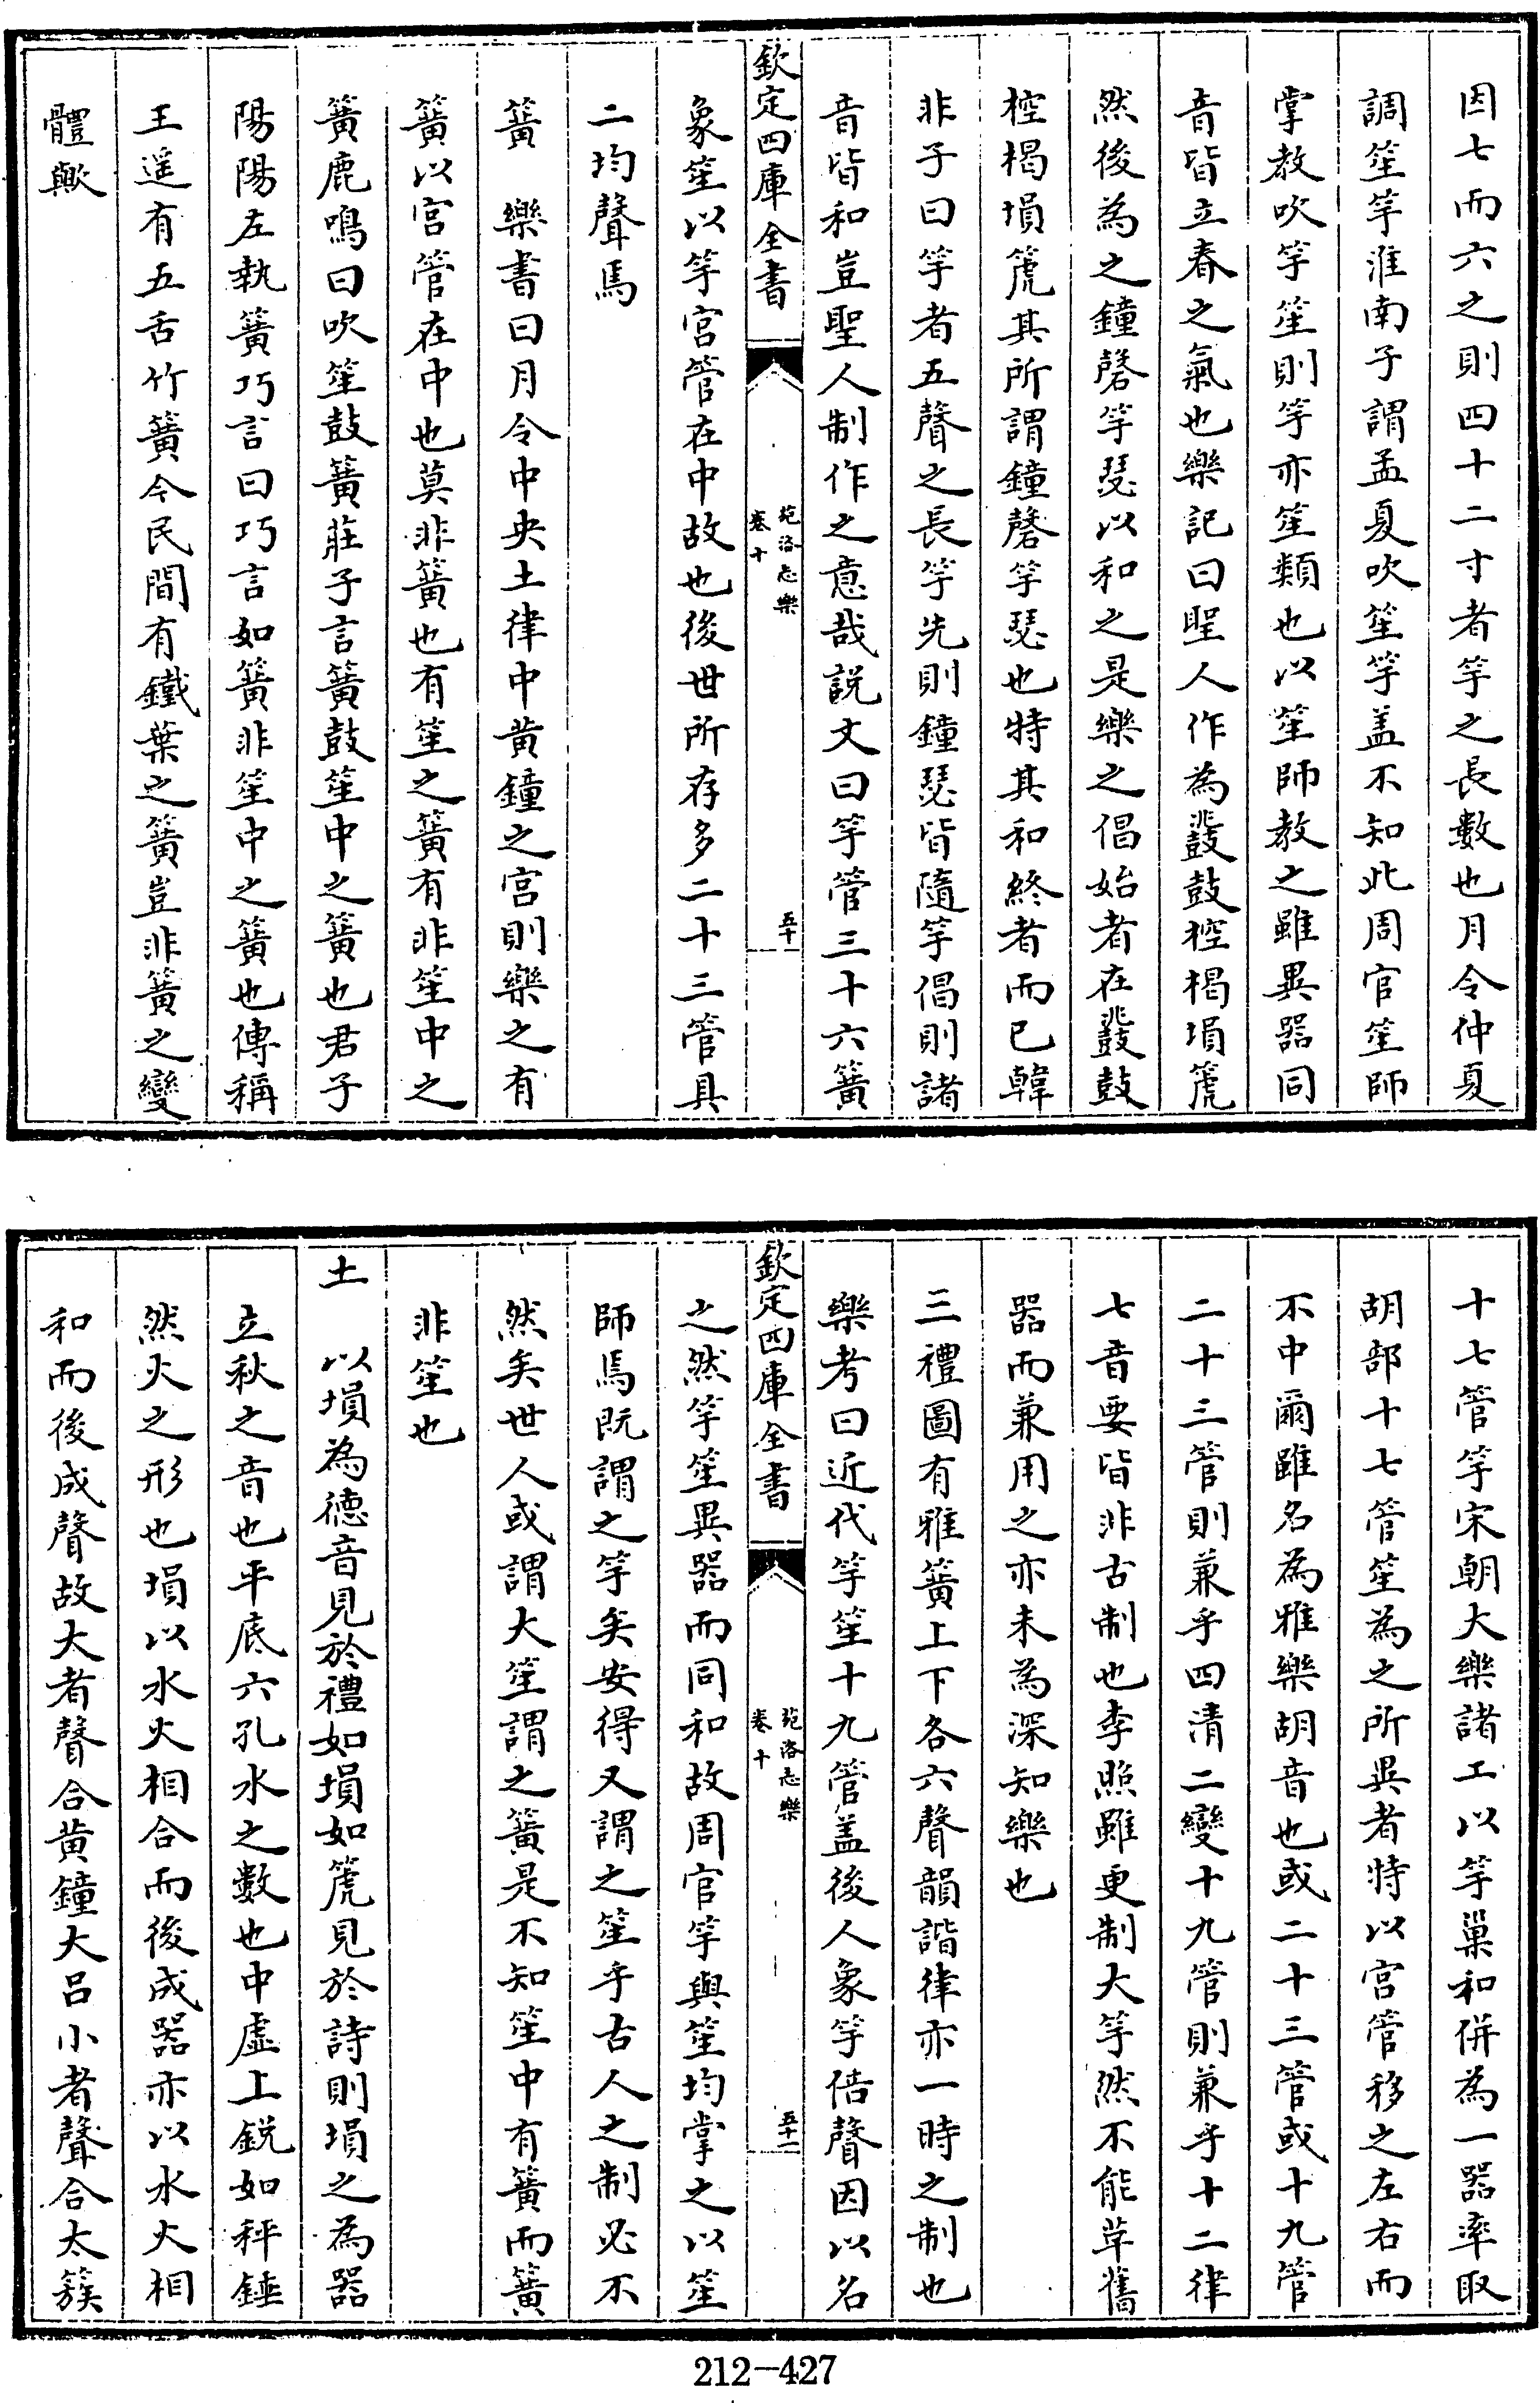 因七而六之則四十二寸者竽之長數也月令仲夏
調笙竽淮南子謂孟夏吹笙竽盖不知此周官笙師
掌教吹竽笙則竽亦笙類也以笙師教之雖異器同
音皆立春之氣也樂記曰聖人作為鼗鼓椌楬塤箎
然後為之鐘磬竽瑟以和之是樂之倡始者在鼗鼓
椌楬塤箎其所謂鐘磬竽瑟也特其和終者而已韓
非子曰竽者五聲之長竽先則鐘瑟皆隨竽倡則諸
音皆和豈聖人制作之意哉説文曰竽管三十六簧
欽定四庫全書
苑洛志樂
卷十
五十
象笙以竽宮管在中故也後世所存多二十三管具
二均聲馬
簧　樂書曰月令中央土律中黄鐘之宫則樂之有
簧以宮管在中也莫非簧也有笙之簧有非笙中之
簧鹿鳴曰吹笙鼓簧莊子言簧鼓笙中之簧也君子
陽陽左執簧巧言曰巧言如簧非笙中之簧也傳稱
王遥有五舌竹簧今民間有鐵葉之簧豈非簧之變
體歟
十七管竽宋朝大樂諸工以竽巢和併為一器率取
胡部十七管笙為之所異者特以宫管移之左右而
不中爾雖名為雅樂胡音也或二十三管或十九管
二十三管則兼乎四清二變十九管則兼乎十二律
七音要皆非古制也李照雖更制大竽然不能革舊
器而兼用之亦未為深知樂也
三禮圖有雅簧上下各六聲韻諧律亦一時之制也
樂考曰近代竽笙十九管盖後人象竽倍聲因以名
欽定四庫全書
苑洛志樂
卷十
五十一
之然竽笙異器而同和故周官竽與笙均掌之以笙
師馬既謂之竽矣安得又謂之笙乎古人之制必不
然矣世人或謂大笙謂之簧是不知笙中有簧而簧
非笙也
土　以塤為德音見於禮如塤如箎見於詩則塤之為器
立秋之音也平底六孔水之數也中虚上鋭如秤錘
然火之形也塤以水火相合而後成器亦以水火相
和而後成聲故大者聲合黄鐘大吕小者聲合太簇
212-427